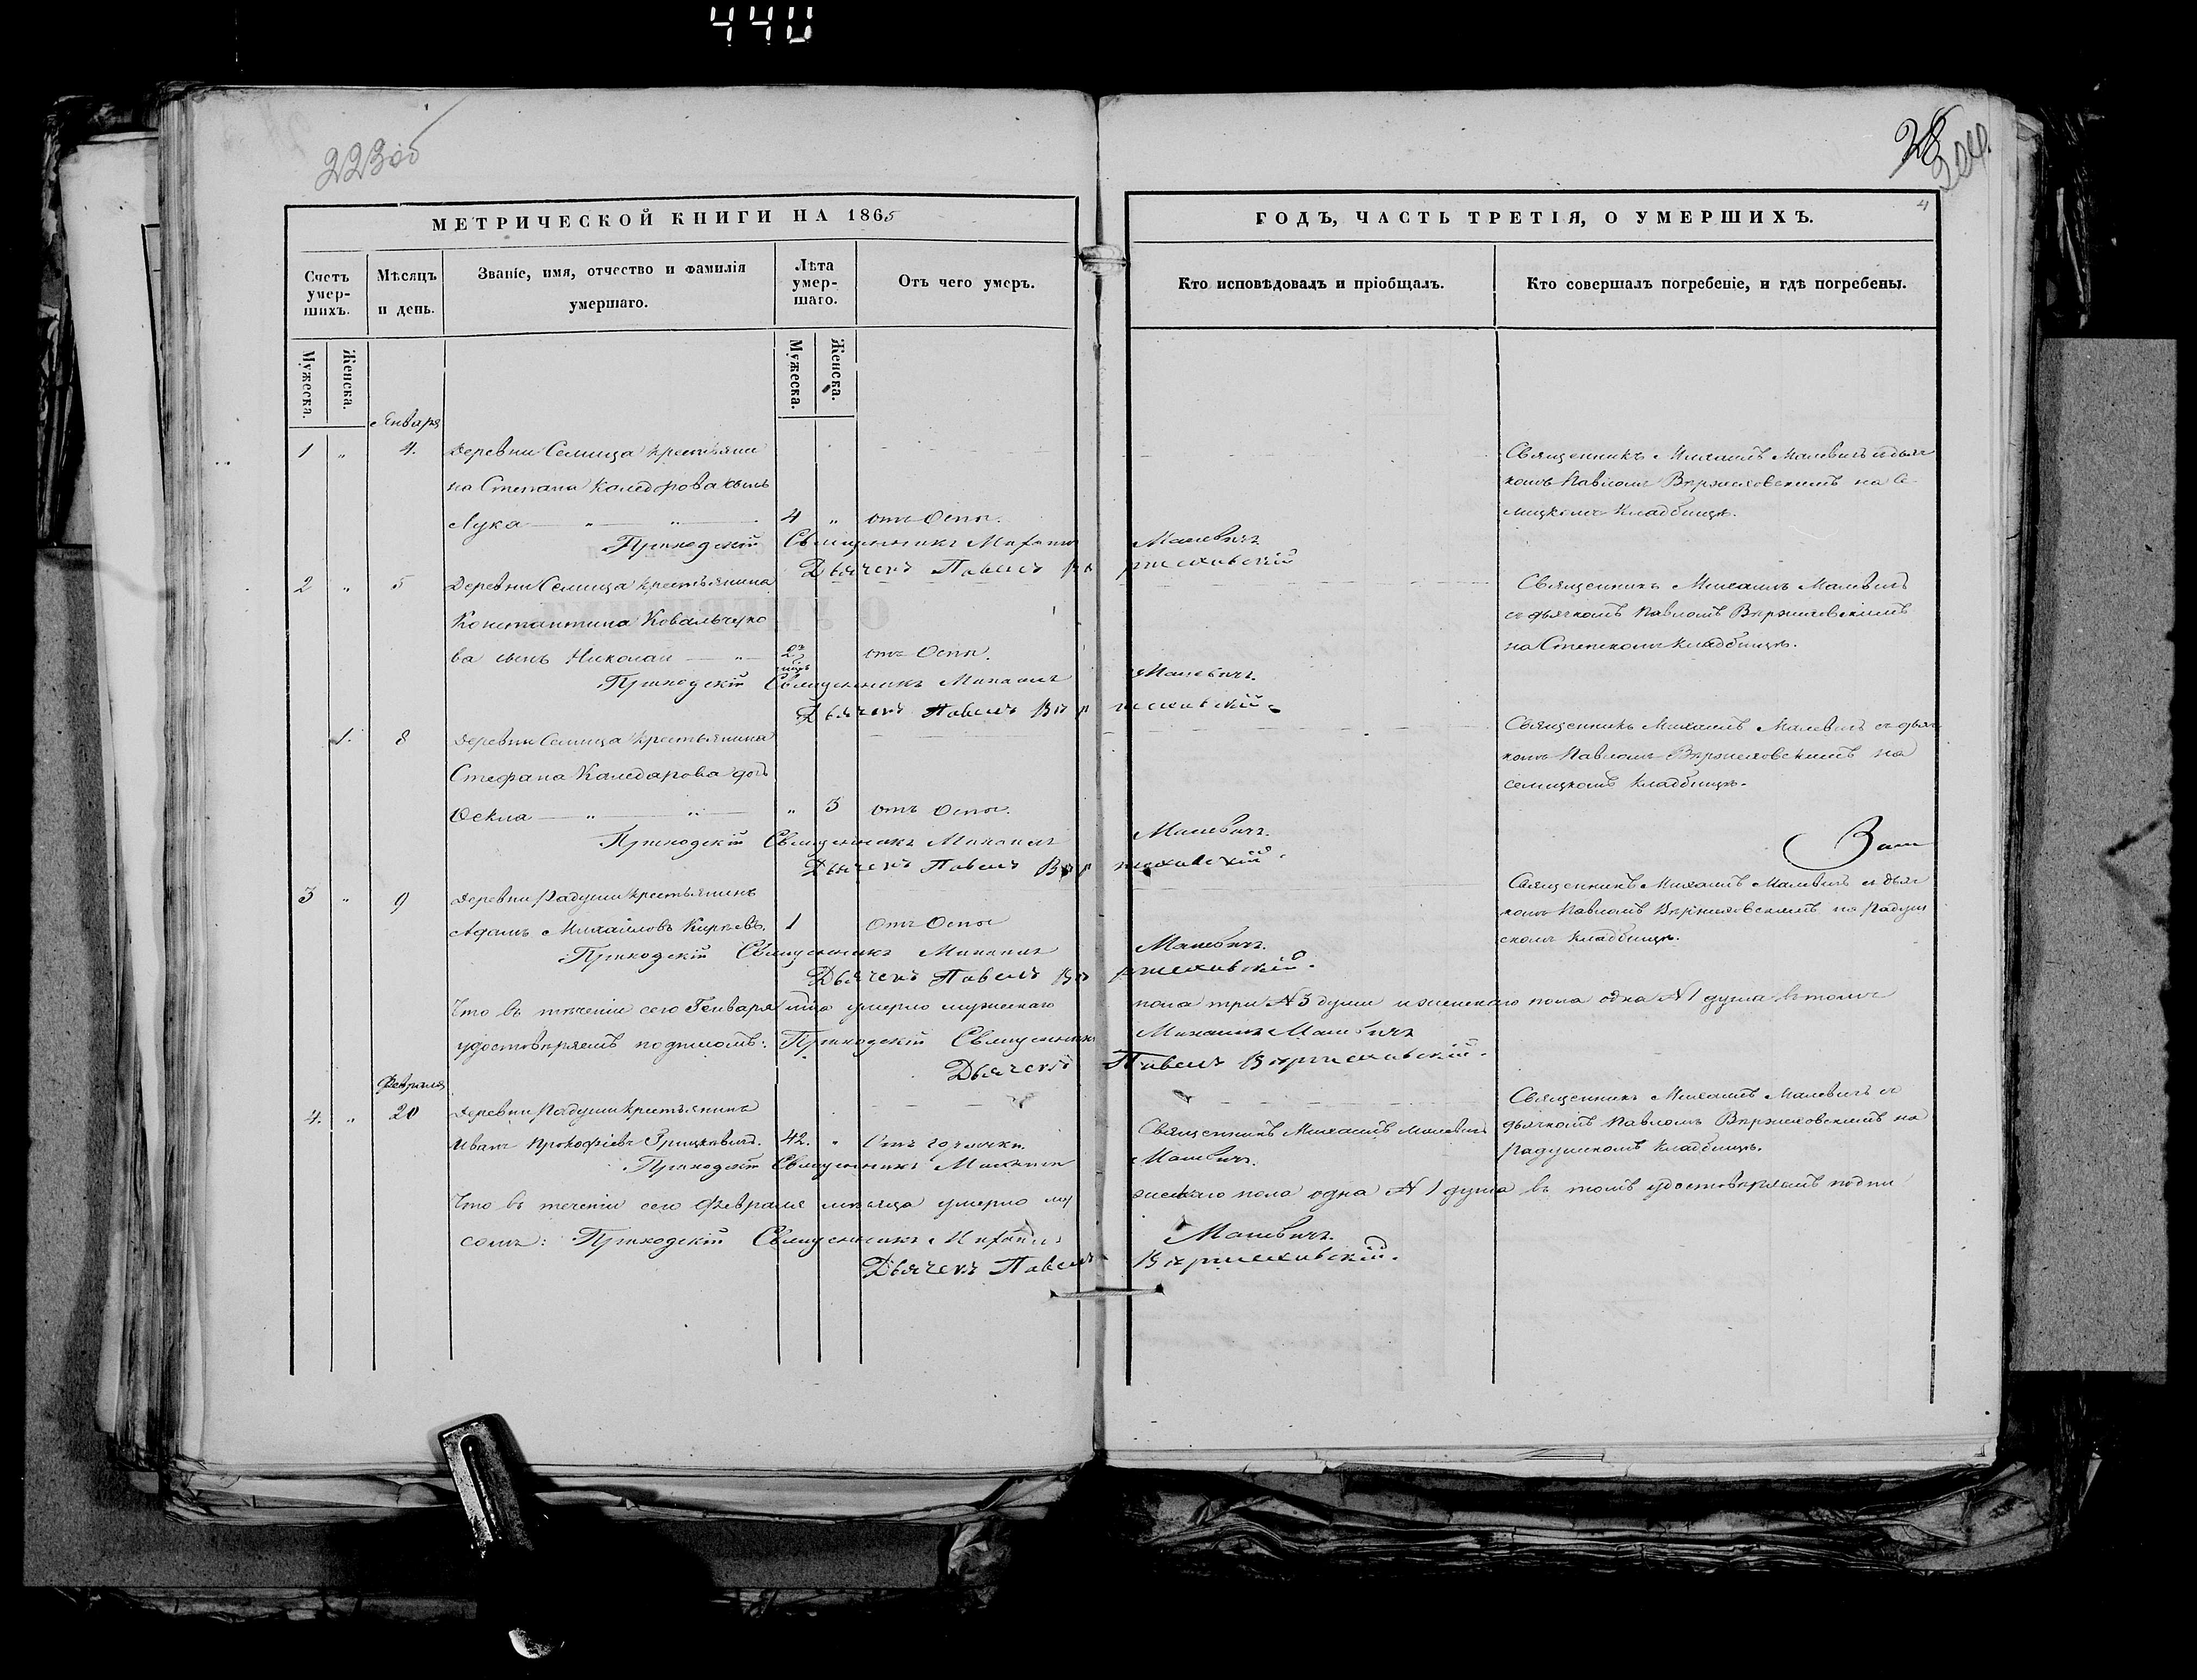 440
223об
28
224
МЕТРИЧЕСКОЙ КНИГИ НА 1865
ГОДЪ, ЧАСТЬ ТРЕТІЯ, О УМЕРШИХЪ.
4
Счетъ умер-шихъ.
Мѣсяцъ и день.
Званіе, имя, отчество и фамилія умершаго.
Лѣта умер-шаго.
Отъ чего умеръ.
Кто исповѣдовалъ и пріобщалъ.
Кто совершалъ погребеніе, и гдѣ погребены.
Мужеска.
Женска.
Мужеска.
Женска.
Января
1 " 4. Деревни Семица крестьяни
на Степана Каледорова сынъ
Лука 4 " отъ Оспы.
Священникъ Михаилъ Малевичъ съ дьяч
комъ Павломъ Вѣржеховскимъ на Се
мицкомъ кладбищѣ.
Приходскій Священникъ Михаилъ Малевичъ
Дьячекъ Павелъ Вержеховскій
2 " 5 Деревни Семица крестьянина
Константина Ковальчуко
ва сынъ Николай 2 отъ Оспы.
Священникъ Михаилъ Малевичъ
съ дьячкомъ Павломъ Вѣржеховскимъ
кладбищѣ.
Приходскій Священникъ Михаилъ Малевичъ.
Дьячекъ Павелъ Вержеховскій.
1. 8 Деревни Семица крестьянина
Стефана Каледарова дочь
Фекла " 3 отъ Оспы.
Священникъ Михаилъ Малевичъ съ дьяч
комъ Павломъ Вѣржеховскимъ на
семицкомъ кладбищѣ.
Приходскій Священникъ Михаилъ Малевичъ.
Дьячекъ Павелъ Вержеховскій.
3 " 9 Деревни Радуши крестьянинъ
Адамъ Михаиловъ 1 отъ Оспы
Священникъ Михаилъ Малевичъ съ дьяч
комъ Павломъ Вѣржеховскимъ на Радуш
скомъ кладбищѣ.
Приходскій Священникъ Михаилъ Малевичъ.
Дьячекъ Павелъ Вержеховскій.
Что въ теченіи сего Генваря мца умерло мужескаго пола три №3 души и женскаго пола одна №1 душа въ томъ
удостовѣряемъ подписомъ: Приходскій Священникъ Михаилъ Малевичъ
Дьячекъ Павелъ Вержеховскій.
Февраля
4. " 20 Деревни Радуши крестьянинъ
Иванъ Прокофіевъ Грицкевичъ. 42. " Отъ горячки.
Священникъ Михаилъ Малевичъ
Священникъ Михаилъ Малевичъ съ
дьячкомъ Павломъ Вѣржеховскимъ на
Радушскомъ кладбищѣ.
Приходскій Священникъ Михаилъ Малевичъ.
Что въ теченіи сего Февраля мѣсяца умерло мужескаго пола одна №1 душа въ томъ удостовѣряемъ подпи
сомъ: Приходскій Священникъ Михаилъ Малевичъ.
Дьячекъ Павелъ Вержеховскій.